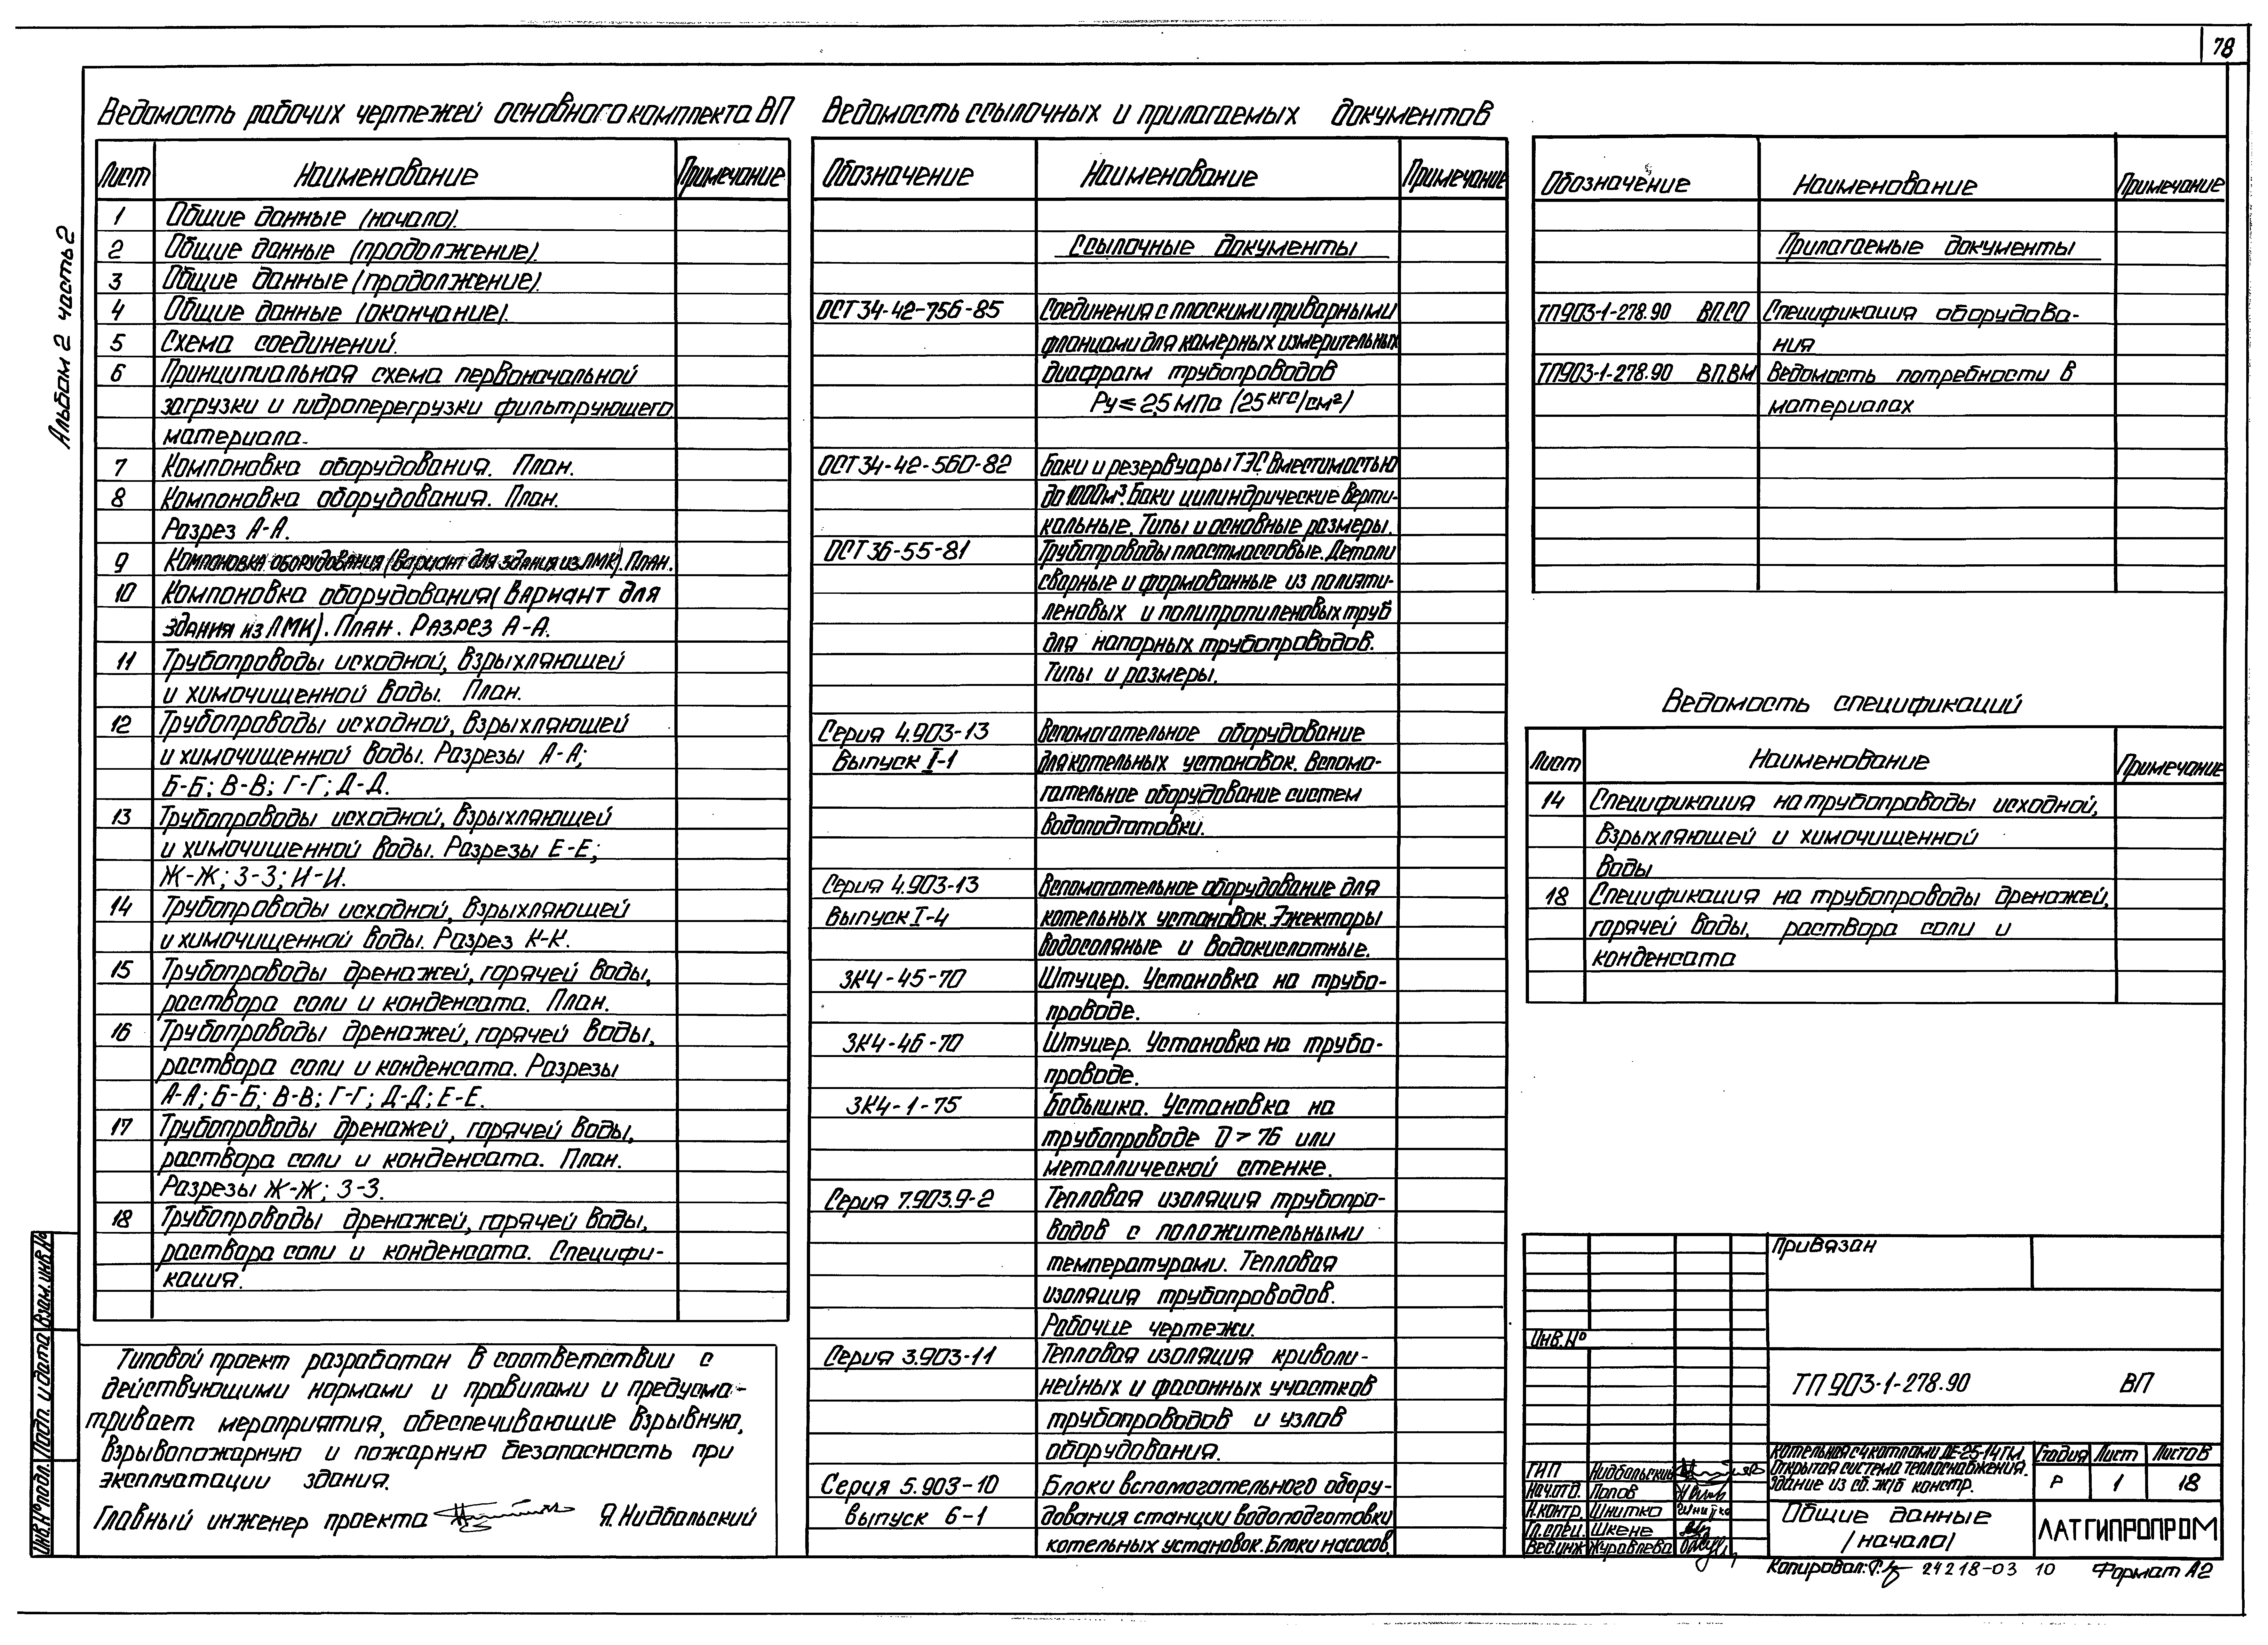 78
Альбом 2 часть 2
Ведомость рабочих чертежей основного комплекта ВП
Лист Наименование Примечание
1 Общие данные (начало).
2 Общие данные (продолжение).
3 Общие данные (продолжение).
4 Общие данные (окончание).
5 Схема соединений.
6 Принципиальная схема первоначальной
загрузки и гидроперегрузки фильтрующего
материала.
7 Компоновка оборудования. План.
8 Компоновка оборудования. План.
Разрез А-А.
9 Компоновка оборудования (вариант для здания из ЛМК). План.
10 Компоновка оборудования (вариант для
здания из ЛМК). План. Разрез А-А.
11 Трубопроводы исходной, взрыхляющей
и химочищенной воды. План.
12 Трубопроводы исходной, взрыхляющей
и химочищенной воды. Разрезы А-А;
Б-Б; В-В; Г-Г; Д-Д.
13 Трубопроводы исходной, взрыхляющей
и химочищенной воды. Разрезы Е-Е;
Ж-Ж; З-З; И-И.
14 Трубопроводы исходной, взрыхляющей
и химочищенной воды. Разрез К-К.
15 Трубопроводы дренажей, горячей воды,
раствора соли и конденсата. План.
16 Трубопроводы дренажей, горячей воды,
раствора соли и конденсата. Разрезы
А-А; Б-Б; В-В; Г-Г; Д-Д; Е-Е.
17 Трубопроводы дренажей, горячей воды,
раствора соли и конденсата. План.
Разрезы Ж-Ж; З-З.
18 Трубопроводы дренажей, горячей воды,
раствора соли и конденсата. Специфи-
кация.
Типовой проект разработан в соответствии с
действующими нормами и правилами и предусма-
тривает мероприятия, обеспечивающие взрывную,
взрывопожарную и пожарную безопасность при
эксплуатации здания.
Главный инженер проекта Я.Нидбальский
Инв.№ подл. Подп. и дата Взам. инв.№
Ведомость ссылочных и прилагаемых документов
Обозначение Наименование Примечание
Ссылочные документы
ОСТ 34-42-756-85 Соединения с плоскими приварными
фланцами для камерных измерительных
диафрагм трубопроводов
Ру ≤ 2,5 МПа (25 кгс/см²)
ОСТ 34-42-560-82 Баки и резервуары ТЭС вместимостью
до 1000м³. Баки цилиндрические верти-
кальные. Типы и основные размеры.
ОСТ 36-55-81 Трубопроводы пластмассовые. Детали
сварные и формованные из полиэти-
леновых и полипропиленовых труб
для напорных трубопроводов.
Типы и размеры.
Серия 4.903-13 Вспомогательное оборудование
Выпуск I-1 для котельных установок. Вспомо-
гательное оборудование систем
водоподготовки.
Серия 4.903-13 Вспомогательное оборудование для
Выпуск I-4 котельных установок. Эжекторы
водосоляные и водокислотные.
ЗК4-45-70 Штуцер. Установка на трубо-
проводе.
ЗК4-46-70 Штуцер. Установка на трубо-
проводе.
ЗК4-1-75 Бобышка. Установка на
трубопроводе D > 76 или
металлической стенке.
Серия 7.903.9-2 Тепловая изоляция трубопро-
водов с положительными
температурами. Тепловая
изоляция трубопроводов.
Рабочие чертежи.
Серия 3.903-11 Тепловая изоляция криволи-
нейных и фасонных участков
трубопроводов и узлов
оборудования.
Серия 5.903-10 Блоки вспомогательного обору-
выпуск 6-1 дования станции водоподготовки
котельных установок. Блоки насосов.
Обозначение Наименование Примечание
Прилагаемые документы
ТП903-1-278.90 ВП.СО Спецификация оборудова-
ния
ТП903-1-278.90 ВП.ВМ Ведомость потребности в
материалах
Ведомость спецификаций
Лист Наименование Примечание
14 Спецификация на трубопроводы исходной,
взрыхляющей и химочищенной
воды
18 Спецификация на трубопроводы дренажей,
горячей воды, раствора соли и
конденсата
Привязан
Инв.№
ТП 903-1-278.90 ВП
Котельная с 4 котлами ДЕ-25-14ГМ.
Открытая система теплоснабжения.
Здание из сб. ж/б констр.
Стадия Лист Листов
Р 1 18
ГИП Нидбальский
Нач.отд. Попов
Н.контр. Шнитко
Гл.спец. Шкене
Вед.инж Журавлева
Общие данные
(начало)
ЛАТГИПРОПРОМ
Копировал: 24218-03 10 Формат А2